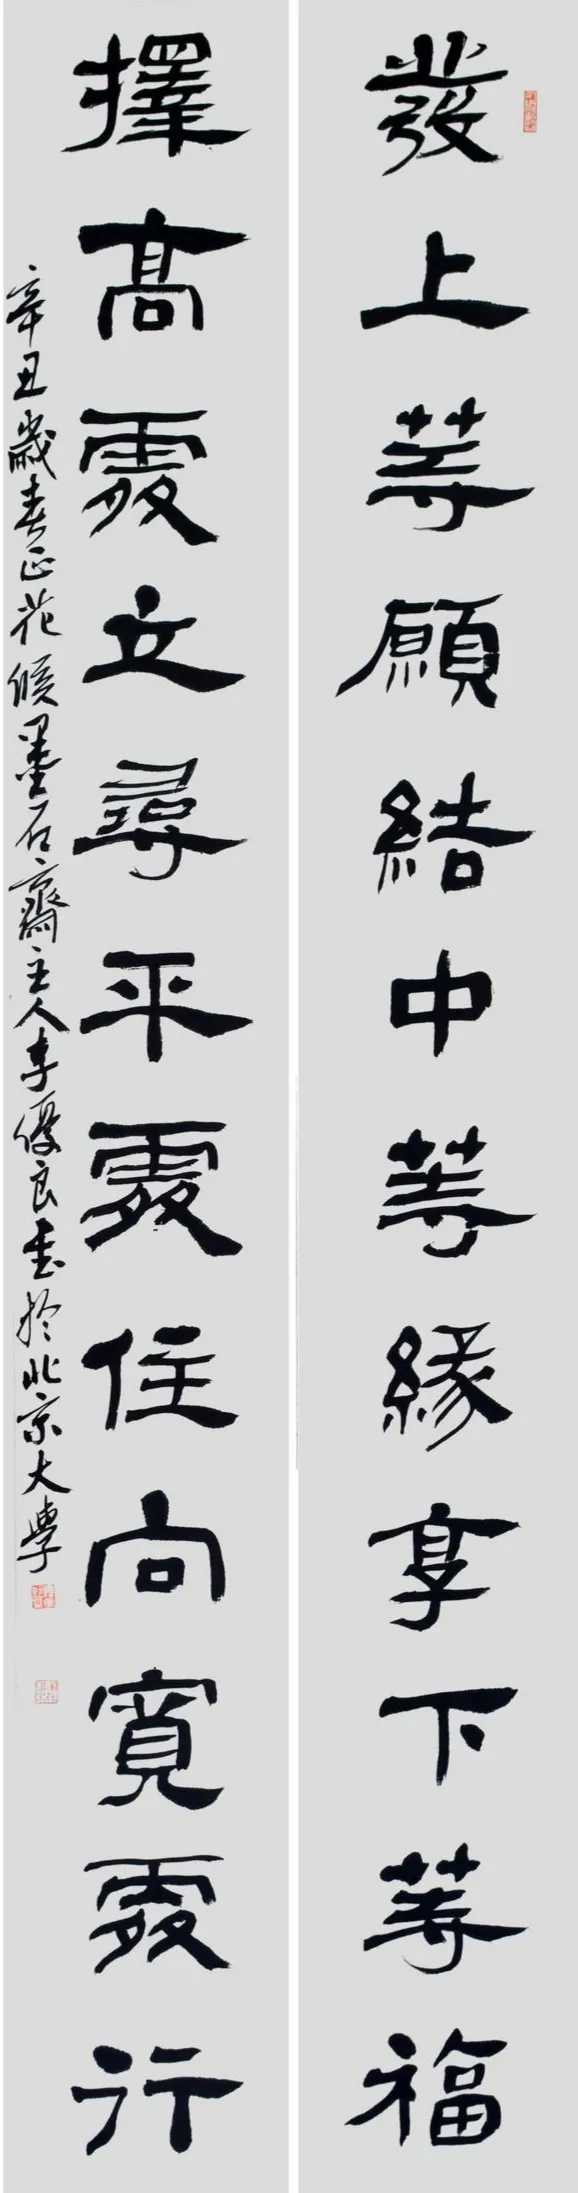 發上等願結中等緣享下等福
擇高處立尋平處住向寬處行
辛丑歲春正花候墨石齋主人李優良書於北京大學